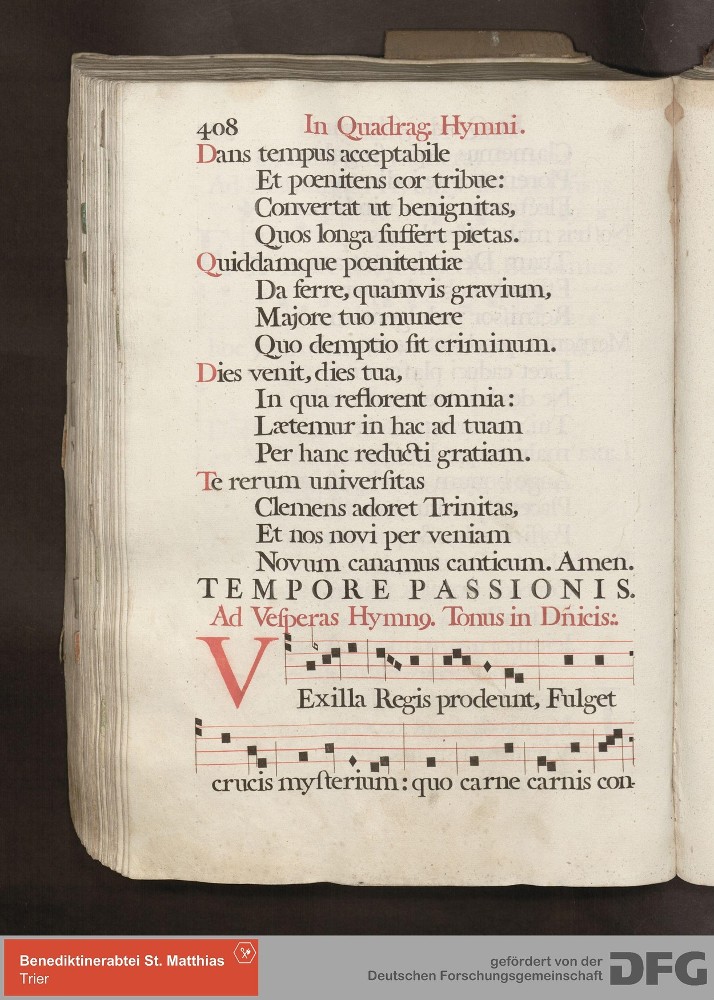 408 In Quadrag: Hymni.
Dans tempus acceptabile
Et pœnitens cor tribue:
Convertat ut benignitas,
Quos longa ſuffert pietas.
Quiddamque pœnitentiæ
Da ferre, quamvis gravium,
Majore tuo munere
Quo demptio fit criminum.
Dies venit, dies tua,
In qua reflorent omnia:
Lætemur in hac ad tuam
Per hanc reducti gratiam.
Te rerum univerſitas
Clemens adoret Trinitas,
Et nos novi per veniam
Novum canamus canticum. Amen.
TEMPORE PASSIONIS.
Ad Veſperas Hymnꝯ. Tonus in Dn̄icis:.
VExilla Regis prodeunt, Fulget
crucis myſterium: quo carne carnis con-
Benediktinerabtei St. Matthias
Trier
gefördert von der
Deutschen Forschungsgemeinschaft
DFG